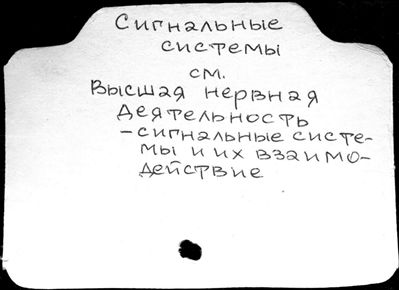 Сигнальные
системы
см.
Высшая нервная
деятельность
-сигнальные систе-
мы и их взаимо-
действие